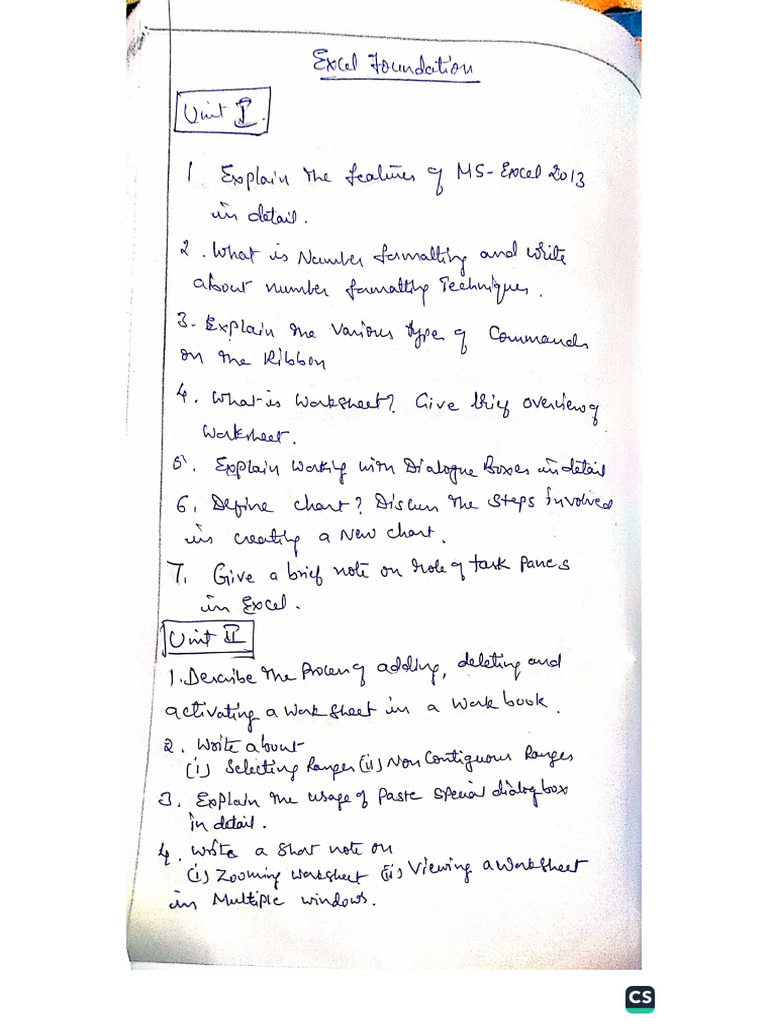 Excel Foundation
Unit I.
1. Explain the features of MS-Excel 2013
in detail.
2. What is Number formatting and write
about number formatting Techniques.
3. Explain the various type of Commands
on the Ribbon
4. What is Worksheet? Give brief overview of
Worksheet.
5. Explain working with Dialogue Boxes in detail
6. Define chart? Discuss the steps involved
in creating a new chart.
7. Give a brief note on role of task panes
in Excel.
Unit II
1. Describe the Process of adding, deleting and
activating a work sheet in a work book.
2. Write about
(i) Selecting Ranges (ii) Non Contiguous Ranges
3. Explain the usage of Paste special dialog box
in detail.
4. Write a short note on
(i) Zooming worksheet (ii) Viewing a worksheet
in Multiple windows.
CS